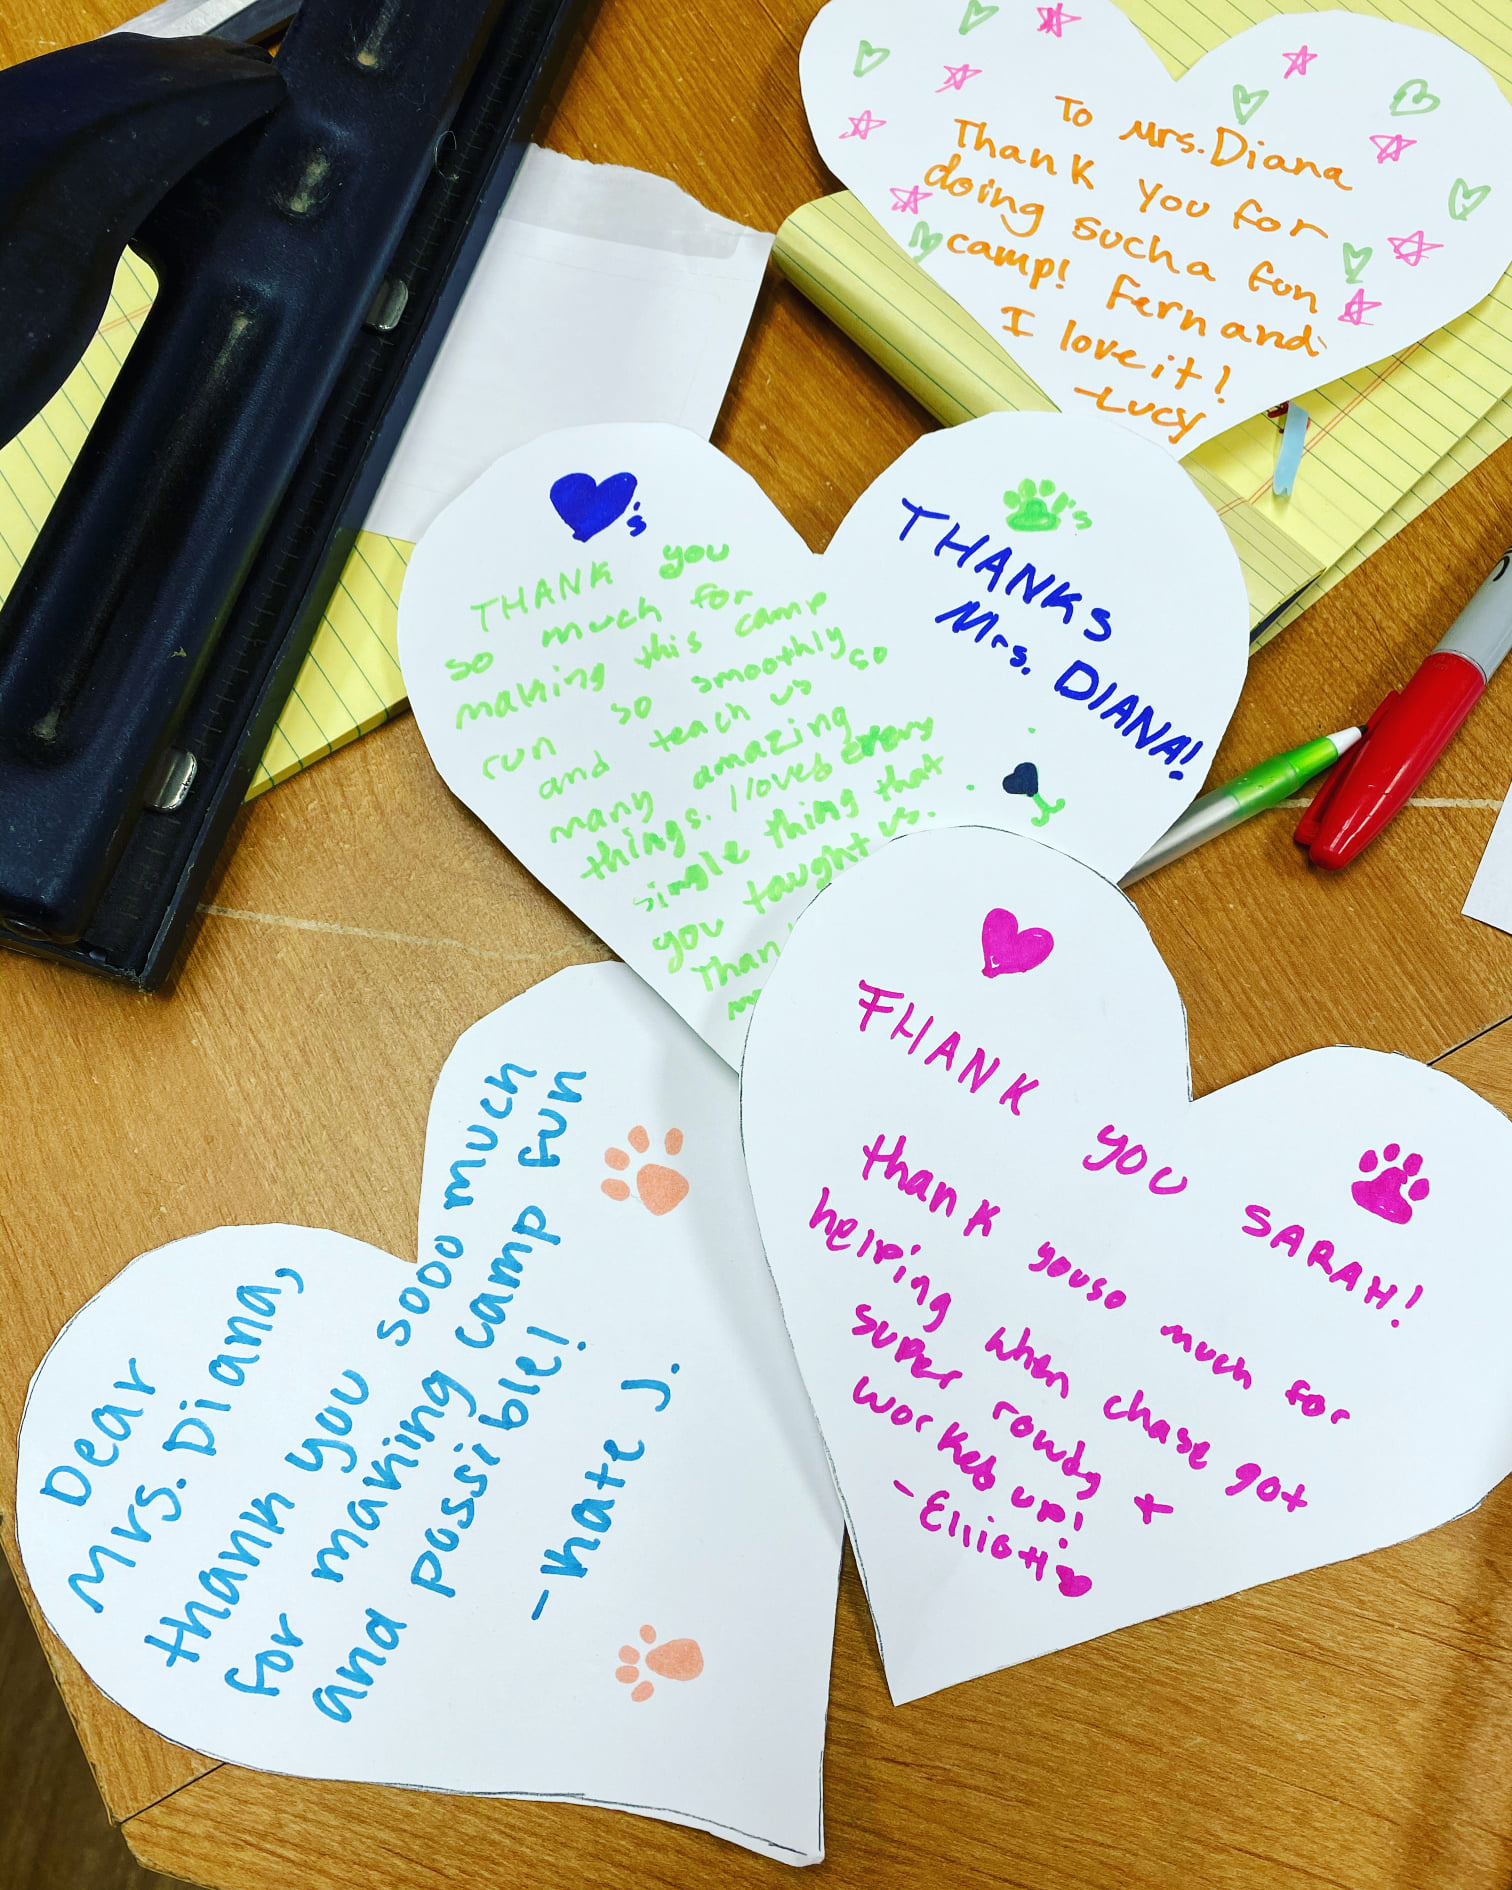 To Mrs. Diana
Thank you for
doing such a fun
camp! Fern and
I love it!
-Lucy
's
THANK you
so much for
making this camp
run so smoothly
and teach us so
many amazing
things. I loved every
single thing that
you taught us.
's
THANKS
Mrs. DIANA!
THANK you SARAH!
thank you so much for
helping when chase got
super rowdy +
worked up!
-Elliott
Dear
Mrs. Diana,
thank you sooo much
for making camp fun
and possible!
-nate J.